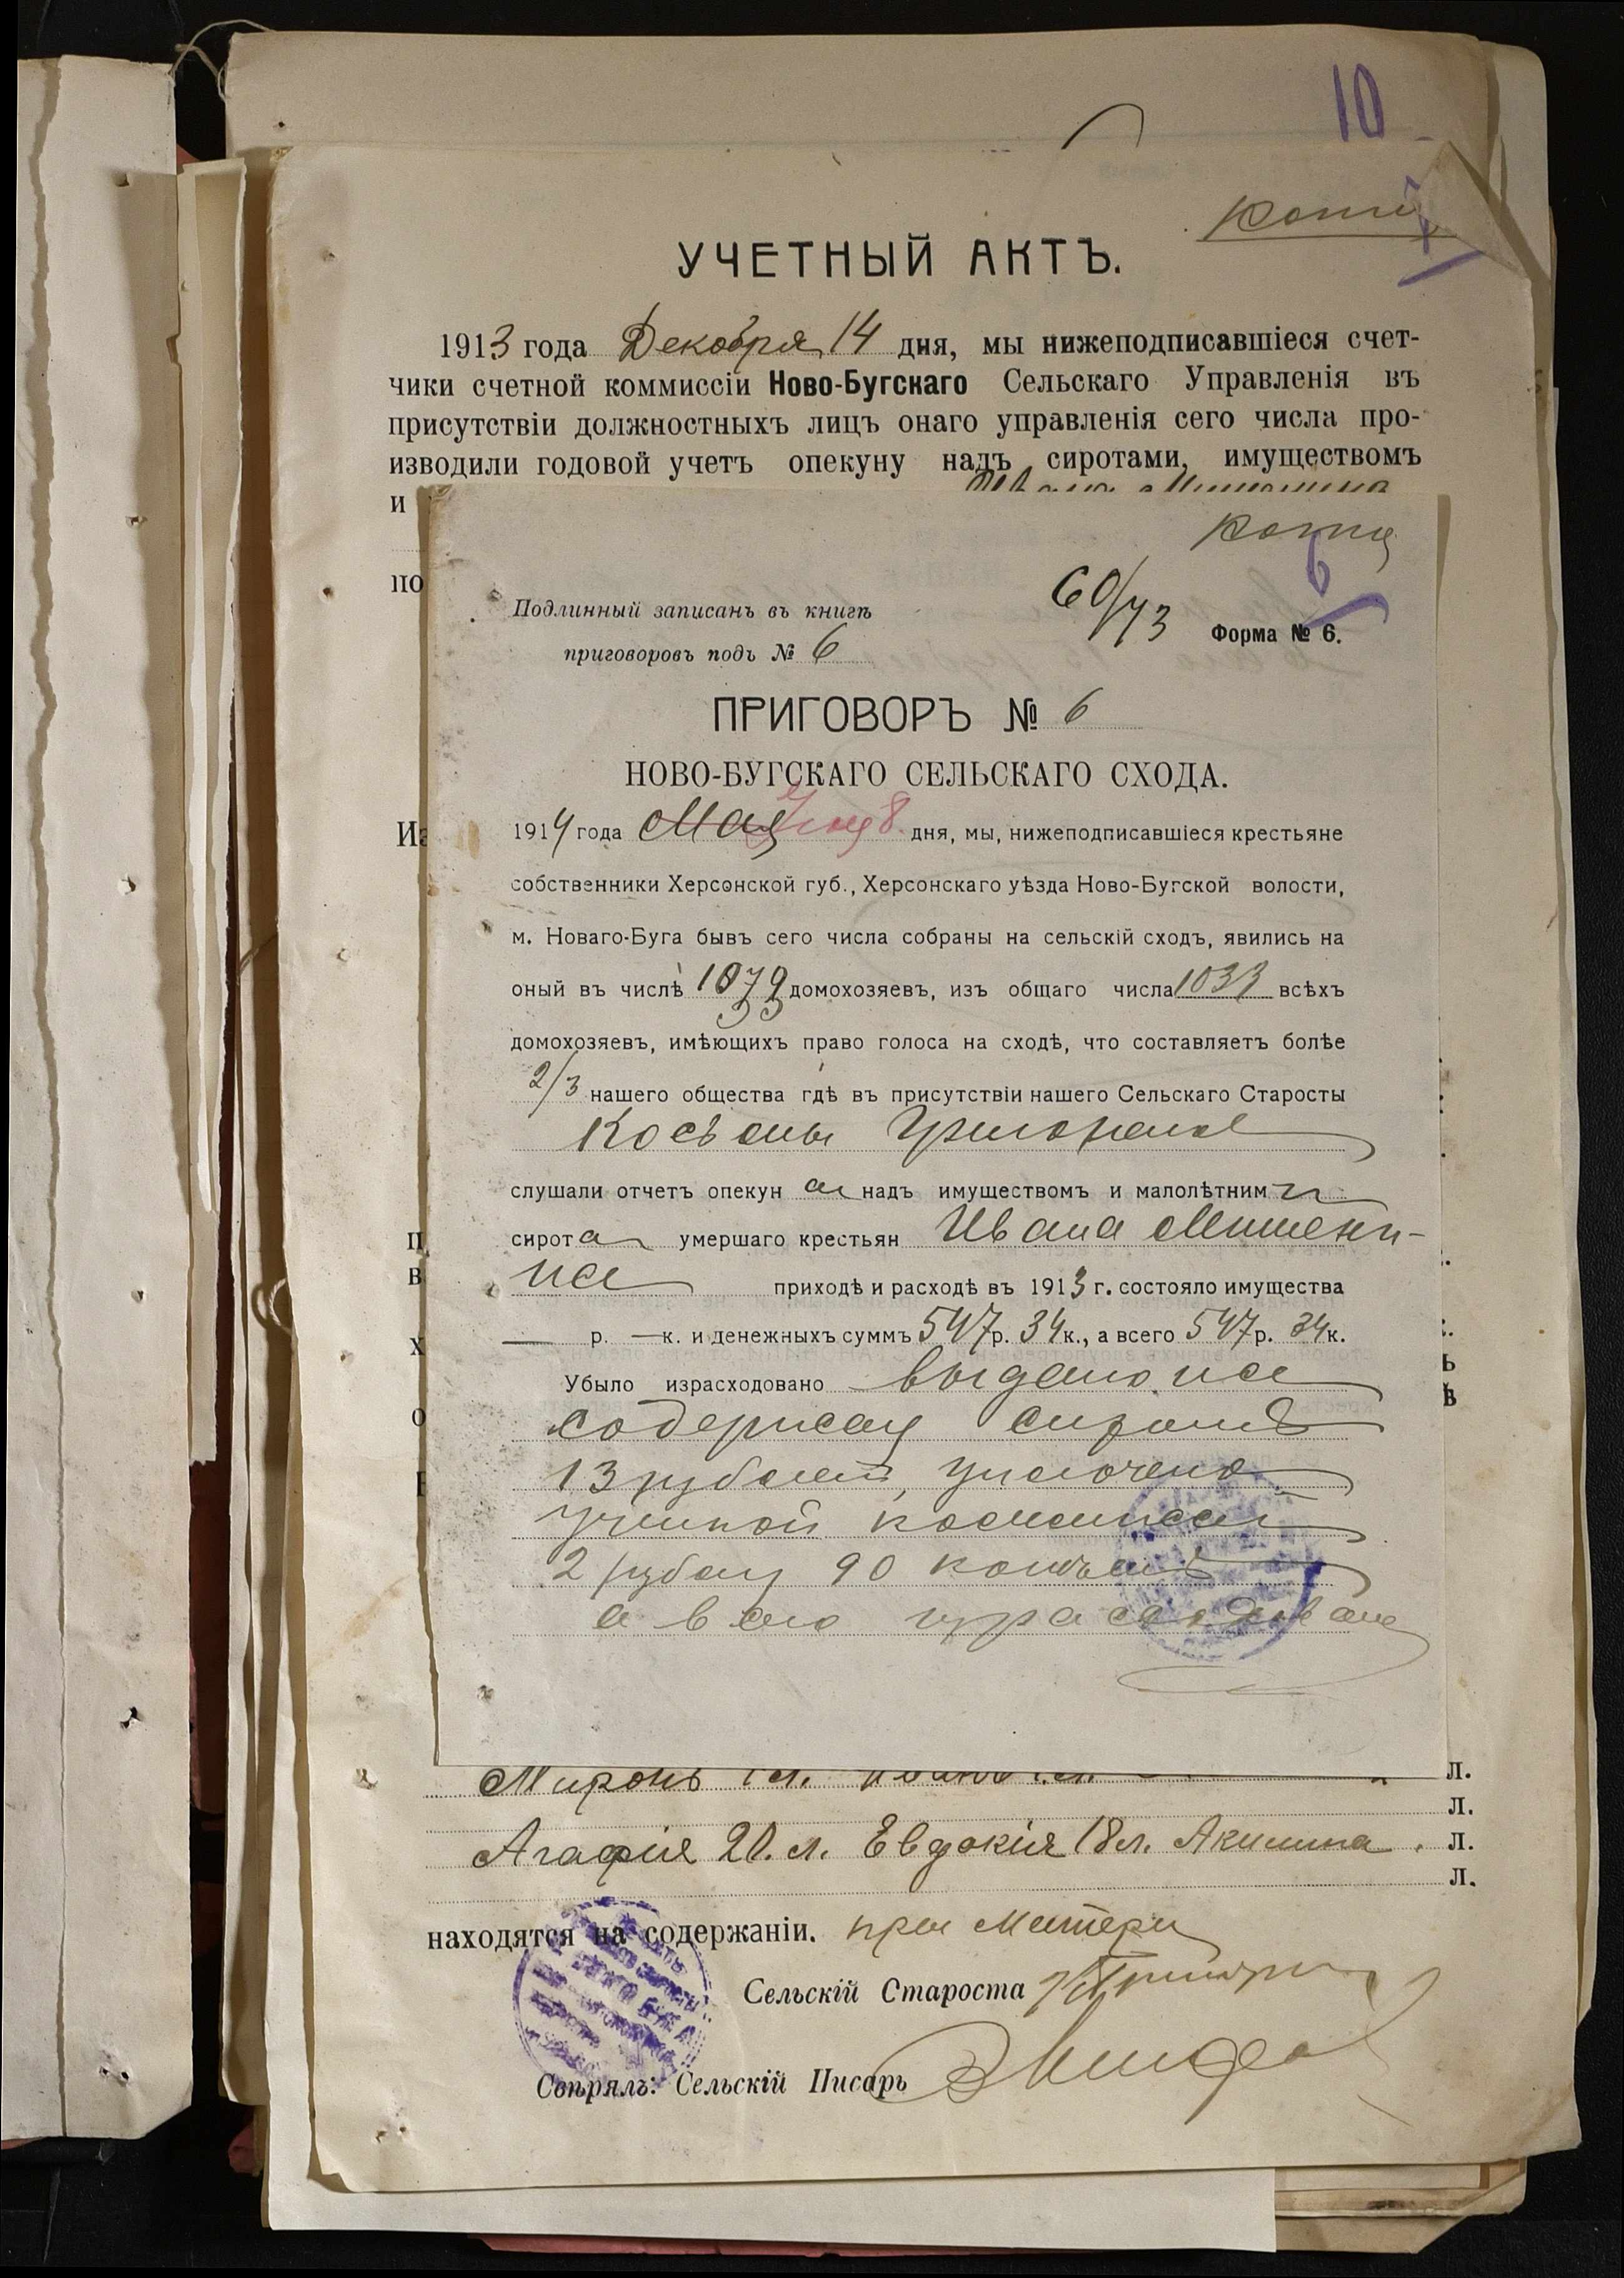 10
Копія
УЧЕТНЫЙ АКТЪ.
1913 года Декабря 14 дня, мы нижеподписавшіеся счет-
чики счетной коммиссіи Ново-Бугскаго Сельскаго Управленія въ
присутствіи должностныхъ лицъ онаго управленія сего числа про-
изводили годовой учетъ опекуну надъ сиротами, имуществомъ
и
по
Копія
6
60/73
Подлинный записанъ въ книгѣ
Форма № 6.
приговоровъ подъ № 6
ПРИГОВОРЪ № 6
НОВО-БУГСКАГО СЕЛЬСКАГО СХОДА.
1914 года Мая Іюня 8 дня, мы, нижеподписавшіеся крестьяне
собственники Херсонской губ., Херсонскаго уѣзда Ново-Бугской волости,
м. Новаго-Буга бывъ сего числа собраны на сельскій сходъ, явились на
оный въ числѣ 1079 домохозяевъ, изъ общаго числа 1033 всѣхъ
домохозяевъ, имѣющихъ право голоса на сходѣ, что составляетъ болѣе
2/3 нашего общества гдѣ въ присутствіи нашего Сельскаго Старосты
Косьмы
слушали отчетъ опекун а надъ имуществомъ и малолѣтним и
сирота умершаго крестьян Ивана Мишени-
на приходѣ и расходѣ въ 1913 г. состояло имущества
— р. — к. и денежныхъ суммъ 547 р. 34 к., а всего 547 р. 34 к.
Убыло израсходовано выдано на
содержая сиротъ
13 рублей, уплочено
учетной коммисіи
2 рубля 90 копѣекъ
а всего израсходовано
Миронъ
л.
л.
Агафія 20 л. Евдокія 18 л. Акилина л.
л.
находятся на содержаніи. при Матери
Сельскій Староста
Свѣрялъ: Сельскій Писарь